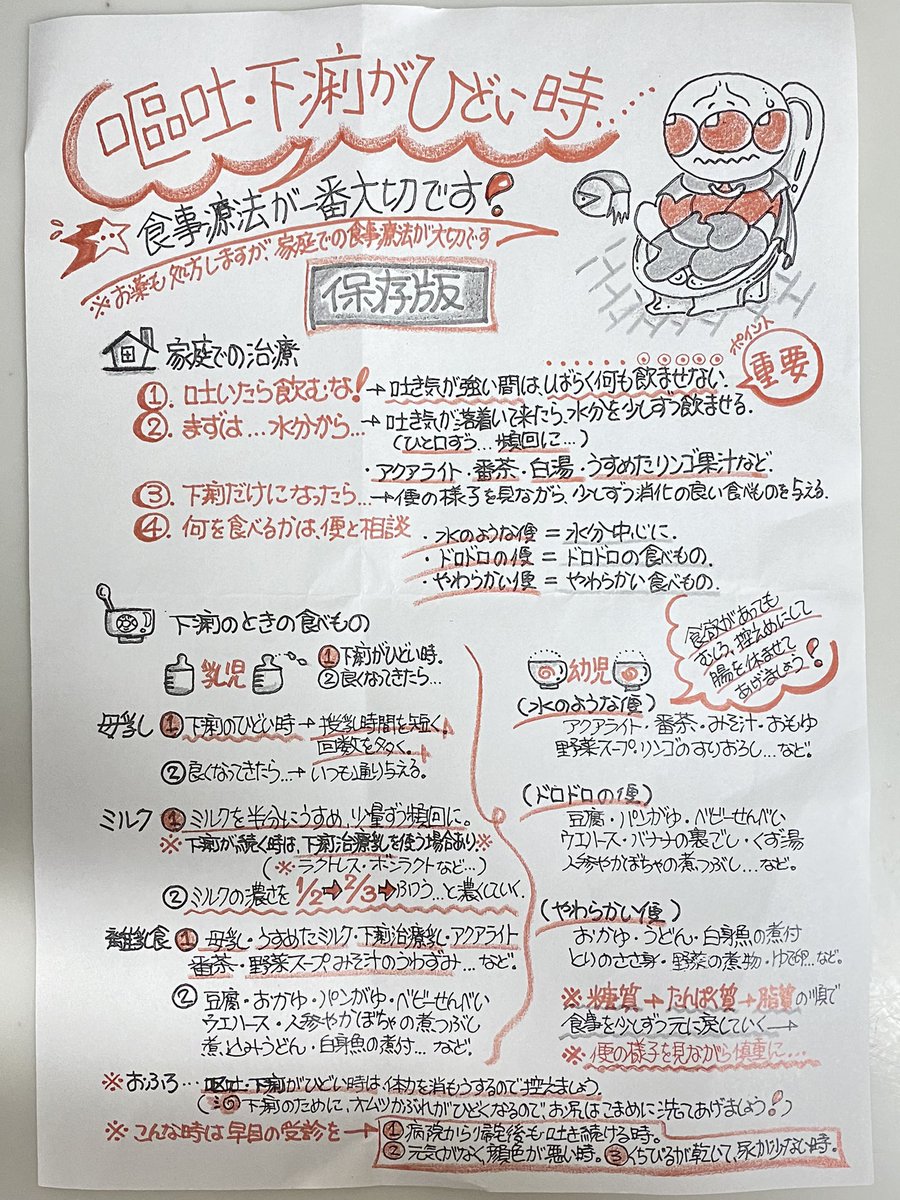 嘔吐・下痢がひどい時……
食事療法が一番大切です!
※お薬も処方しますが、家庭での食事療法が大切です
保存版
家庭での治療
①. 吐いたら飲むな! → 吐き気が強い間は、しばらく何も飲ませない.
ポイント
重要
②. まずは…水分から… → 吐き気が落着いて来たら、水分を少しずつ飲ませる.
(ひと口ずつ…頻回に…)
・アクアライト・番茶・白湯・うすめたリンゴ果汁など.
③. 下痢だけになったら… → 便の様子を見ながら、少しずつ消化の良い食べものを与える.
④. 何を食べるかは、便と相談
・水のような便 = 水分中心に.
・ドロドロの便 = ドロドロの食べもの.
・やわらかい便 = やわらかい食べもの.
下痢のときの食べもの
乳児
①下痢がひどい時.
②良くなってきたら…
母乳 ①下痢のひどい時 → 授乳時間を短く、
回数を多く.
②良くなってきたら…→ いつも通り与える.
ミルク ①ミルクを半分にうすめ、少量ずつ頻回に.
※下痢が続く時は、下痢治療乳を使う場合あり※
(※ラクトレス・ボンラクトなど…)
②ミルクの濃さを 1/2→2/3→ふつう…と濃くしていく.
離乳食 ①母乳・うすめたミルク・下痢治療乳・アクアライト
番茶・野菜スープ、みそ汁のうわずみ…など.
②豆腐・おかゆ・パンがゆ・ベビーせんべい
ウエハース・人参やかぼちゃの煮つぶし
煮込みうどん・白身魚の煮付…など.
食欲があっても
むしろ、控えめにして
腸を休ませて
あげましょう!
幼児
(水のような便)
アクアライト・番茶・みそ汁・おもゆ
野菜スープ・リンゴのすりおろし…など.
(ドロドロの便)
豆腐・パンがゆ・ベビーせんべい
ウエハース・バナナの裏ごし・くず湯
人参やかぼちゃの煮つぶし…など.
(やわらかい便)
おかゆ・うどん・白身魚の煮付
とりのささ身・野菜の煮物・ゆで卵…など.
※糖質→たんぱく質→脂質の順で
食事を少しずつ元に戻していく→
※便の様子を見ながら慎重に…
※おふろ… 嘔吐・下痢がひどい時は、体力を消もうするので控えましょう.
(下痢のために、オムツかぶれがひどくなるので、お尻はこまめに洗てあげましょう!)
※こんな時は早目の受診を→
①病院から帰宅後も吐き続ける時.
②元気がなく、顔色が悪い時. ③くちびるが乾いて、尿が少ない時.